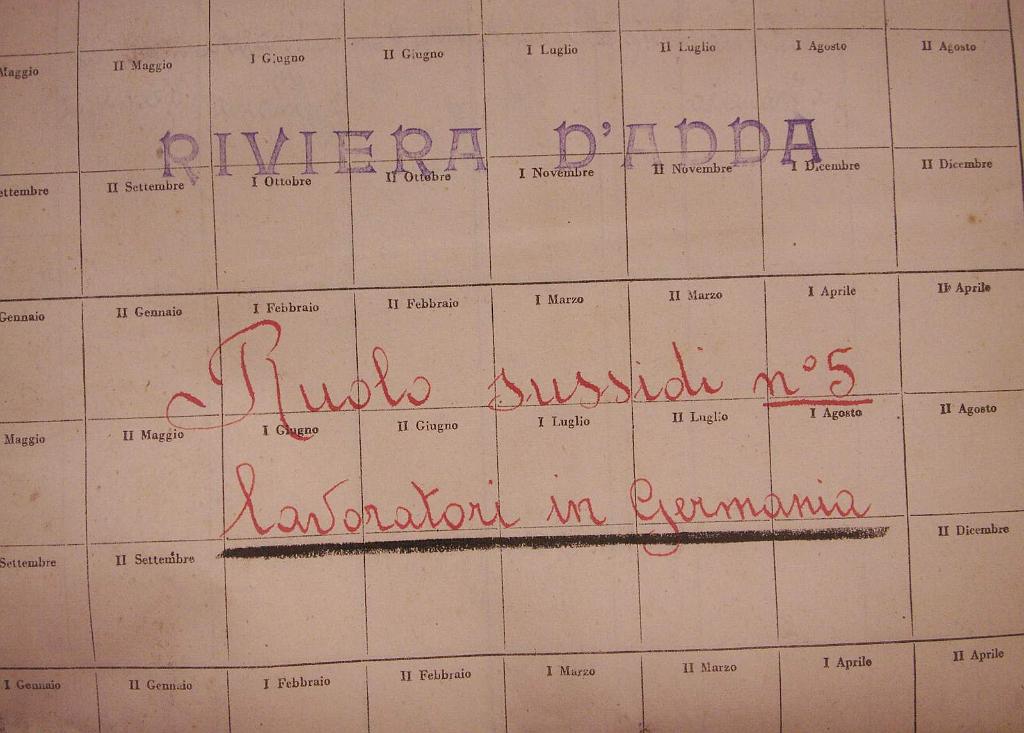 Maggio II Maggio I Giugno II Giugno I Luglio II Luglio I Agosto II Agosto
RIVIERA D'ADDA
ettembre II Settembre I Ottobre II Ottobre I Novembre II Novembre I Dicembre II Dicembre
Gennaio II Gennaio I Febbraio II Febbraio I Marzo II Marzo I Aprile II Aprile
Ruolo sussidi n° 5
Maggio II Maggio I Giugno II Giugno I Luglio II Luglio I Agosto II Agosto
lavoratori in Germania
Settembre II Settembre II Dicembre
I Gennaio II Gennaio I Febbraio II Febbraio I Marzo II Marzo I Aprile II Aprile